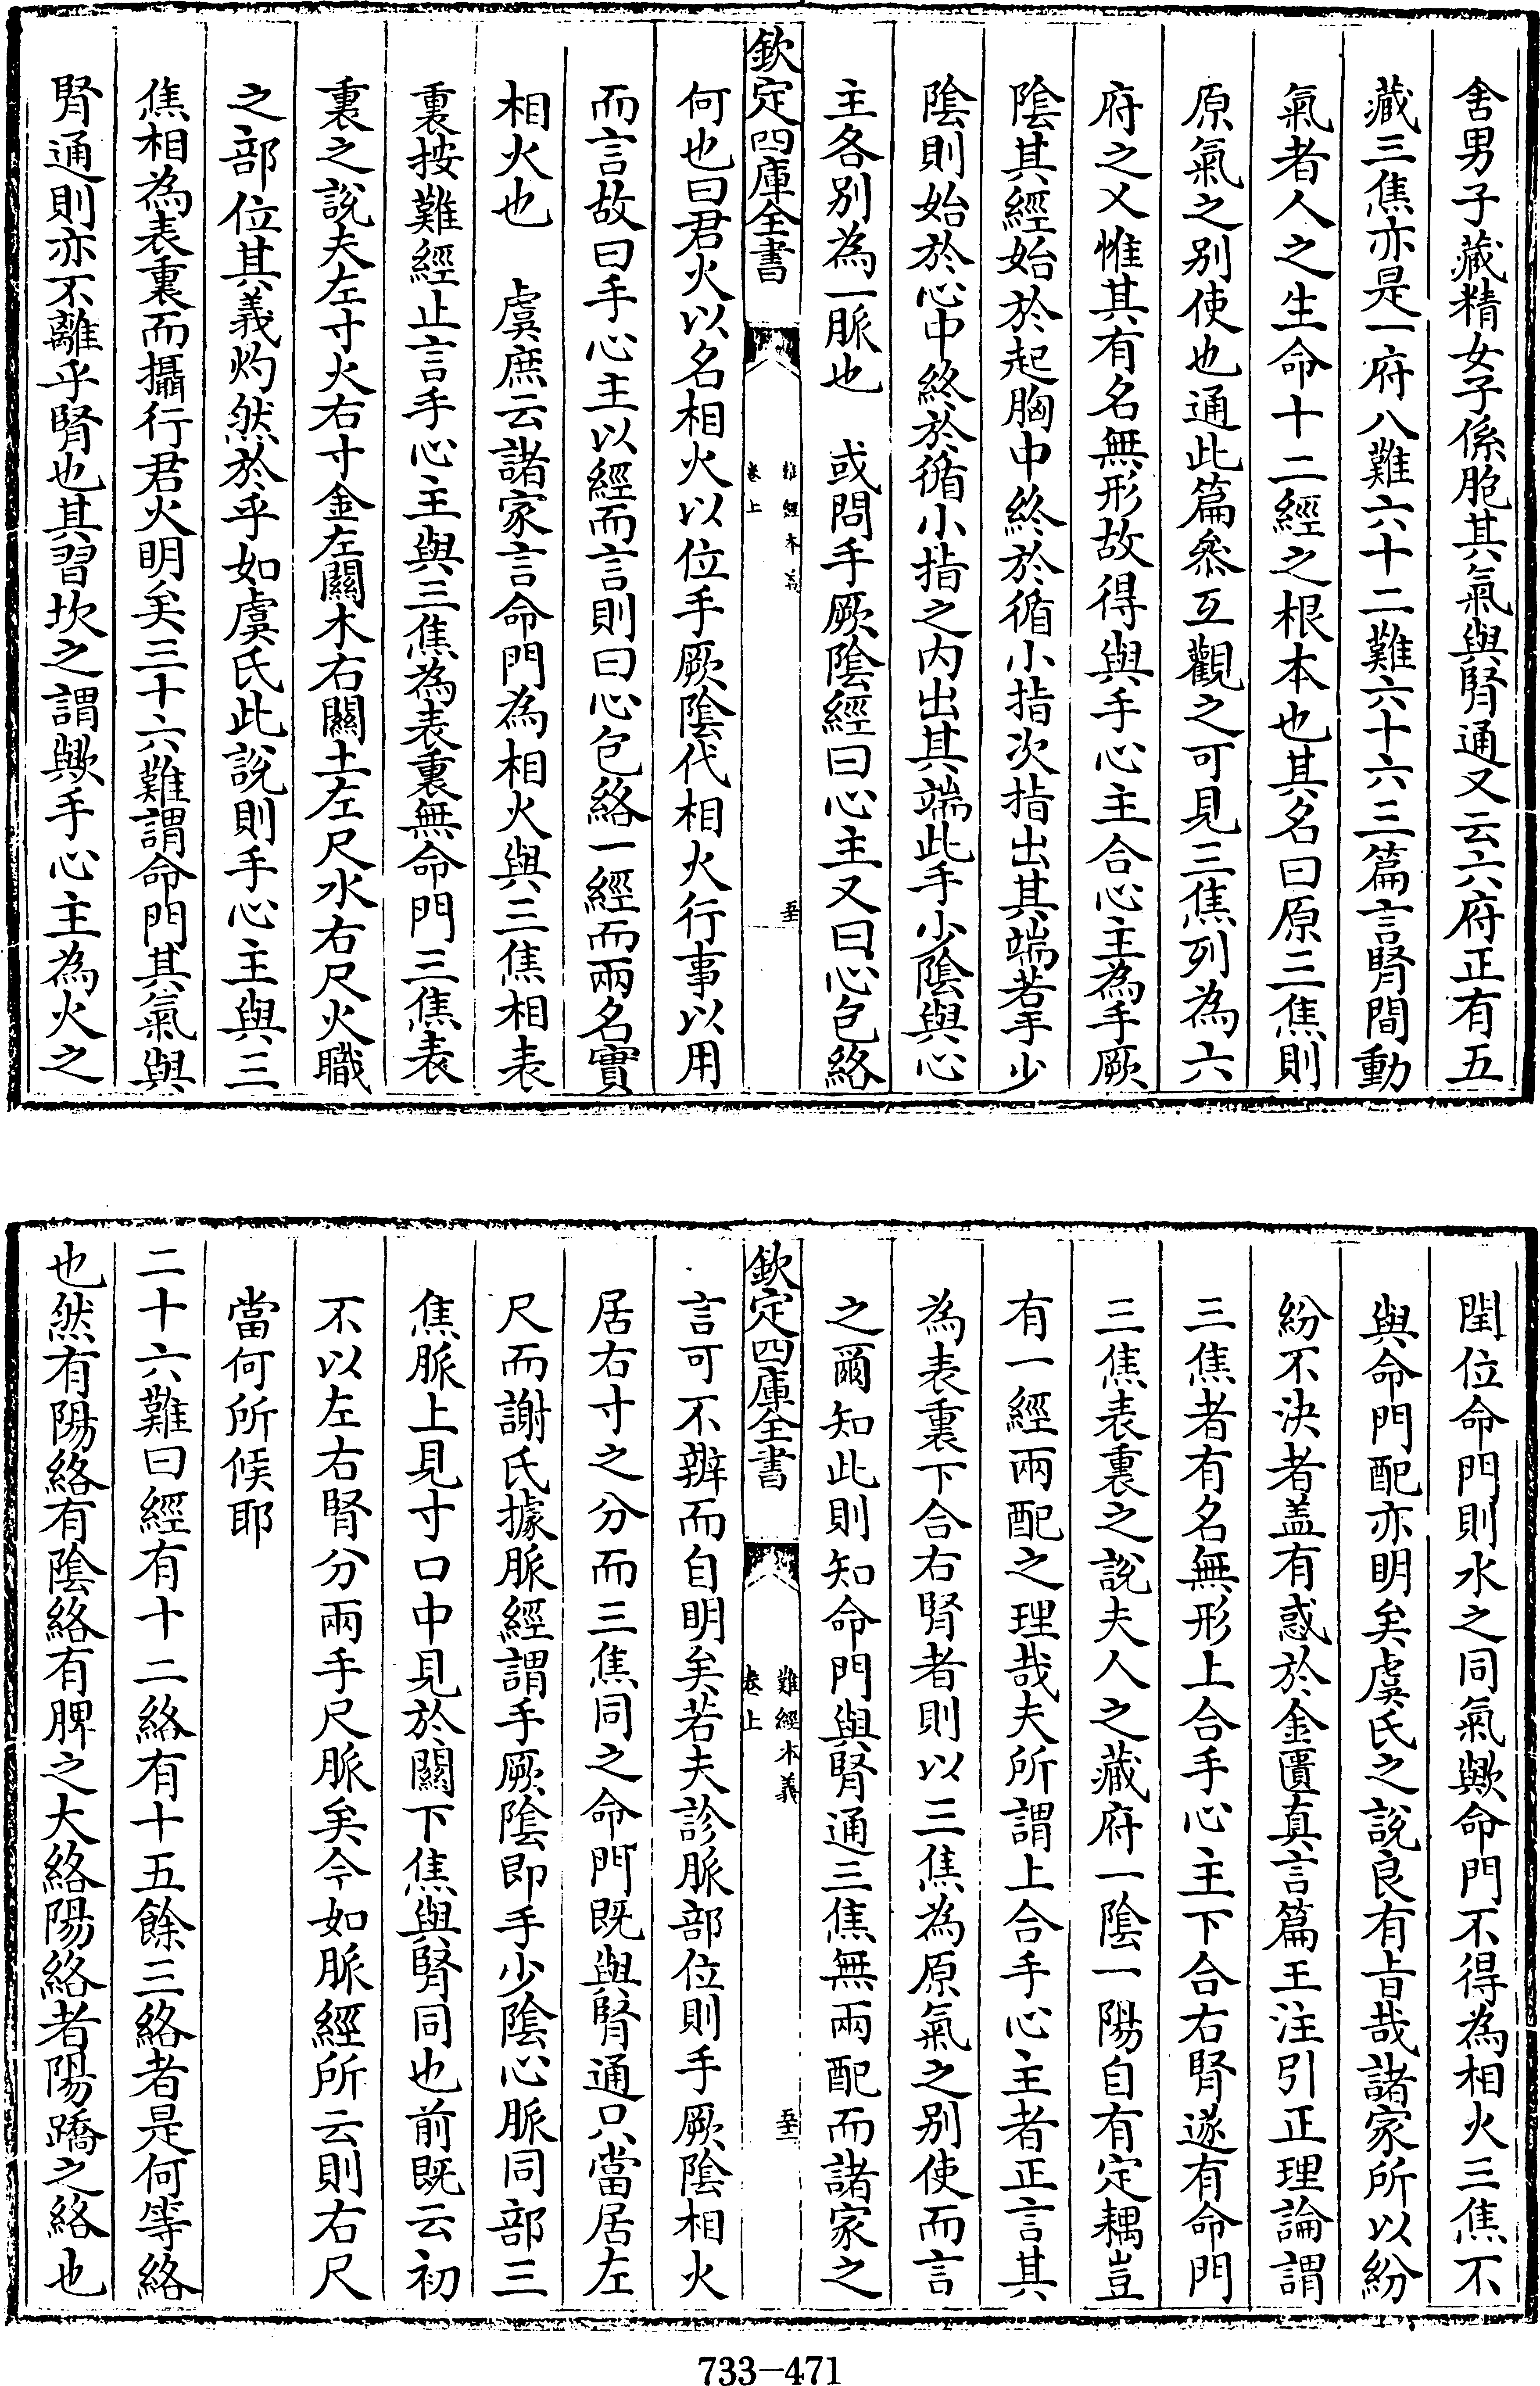 舍男子藏精女子係胞其氣與腎通又云六府正有五
藏三焦亦是一府八難六十二難六十六三篇言腎間動
氣者人之生命十二經之根本也其名曰原三焦則
原氣之别使也通此篇叅互觀之可見三焦列為六
府之义惟其有名無形故得與手心主合心主為手厥
陰其經始於起胸中終於循小指次指出其端若手少
陰則始於心中終於循小指之内出其端此手少陰與心
主各别為一脈也　或問手厥陰經曰心主又曰心包絡
欽定四庫全書
難經本義
卷上
何也曰君火以名相火以位手厥陰代相火行事以用
而言故曰手心主以經而言則曰心包絡一經而兩名實
相火也　虞庶云諸家言命門為相火與三焦相表
裏按難經止言手心主與三焦為表裏無命門三焦表
裏之說夫左寸火右寸金左關木右關土左尺水右尺火職
之部位其義灼然於乎如虞氏此說則手心主與三
焦相為表裏而攝行君火明矣三十六難謂命門其氣與
腎通則亦不離乎腎也其習坎之謂歟手心主為火之
閏位命門則水之同氣歟命門不得為相火三焦不
與命門配亦明矣虞氏之說良有旨哉諸家所以紛
紛不決者盖有惑於金匱真言篇王注引正理論謂
三焦者有名無形上合手心主下合右腎遂有命門
三焦表裏之說夫人之藏府一陰一陽自有定耦豈
有一經兩配之理哉夫所謂上合手心主者正言其
為表裏下合右腎者則以三焦為原氣之别使而言
之爾知此則知命門與腎通三焦無兩配而諸家之
欽定四庫全書
難經本義
卷上
言可不辨而自明矣若夫診脈部位則手厥陰相火
居右寸之分而三焦同之命門既與腎通只當居左
尺而謝氏據脈經謂手厥陰即手少陰心脈同部三
焦脈上見寸口中見於關下焦與腎同也前既云初
不以左右腎分兩手尺脈矣今如脈經所云則右尺
當何所候耶
二十六難曰經有十二絡有十五餘三絡者是何等絡
也然有陽絡有陰絡有脾之大絡陽絡者陽蹻之絡也
733-471